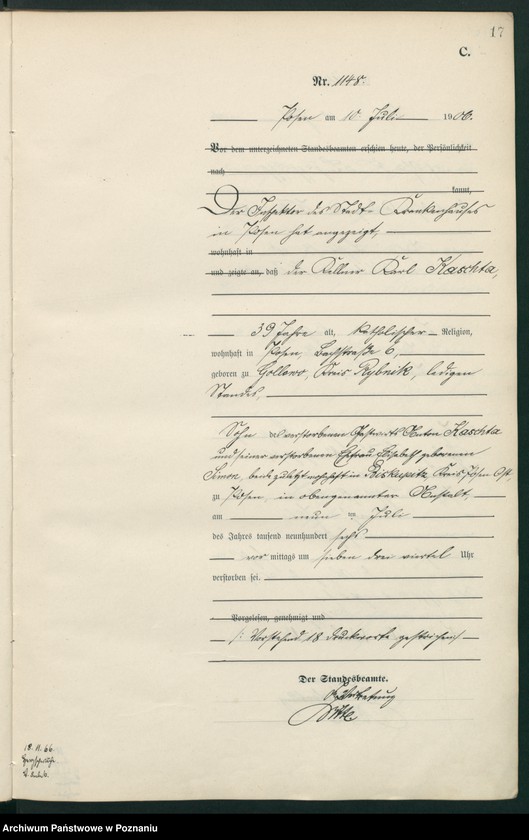 17
C.
Nr. 1148.
Posen am 10. Juli 1906.
Vor dem unterzeichneten Standesbeamten erschien heute, der Persönlichkeit
nach
kannt,
Der Inspektor des Stadt-Krankenhauses
in Posen hat angezeigt,
wohnhaft in
und zeigte an, daß der Kellner Karl Kaschta,
39 Jahre alt, katholischer Religion,
wohnhaft in Posen, Bachstraße 6,
geboren zu Gollowo, Kreis Rybnik, ledigen
Standes,
Sohn des verstorbenen Gastwirts Anton Kaschta
und seiner verstorbenen Ehefrau Elisabeth geborenen
Simon, beide zuletzt wohnhaft in Biskupitz, Kreis Posen Ost,
zu Posen, in obengenannter Anstalt,
am neun ten Juli
des Jahres tausend neunhundert sechs
vor mittags um sieben drei viertel Uhr
verstorben sei.
Vorgelesen, genehmigt und
/: Vorstehend 18 Druckworte gestrichen
Der Standesbeamte.
In Vertretung
18. 11. 66
Archiwum Państwowe w Poznaniu